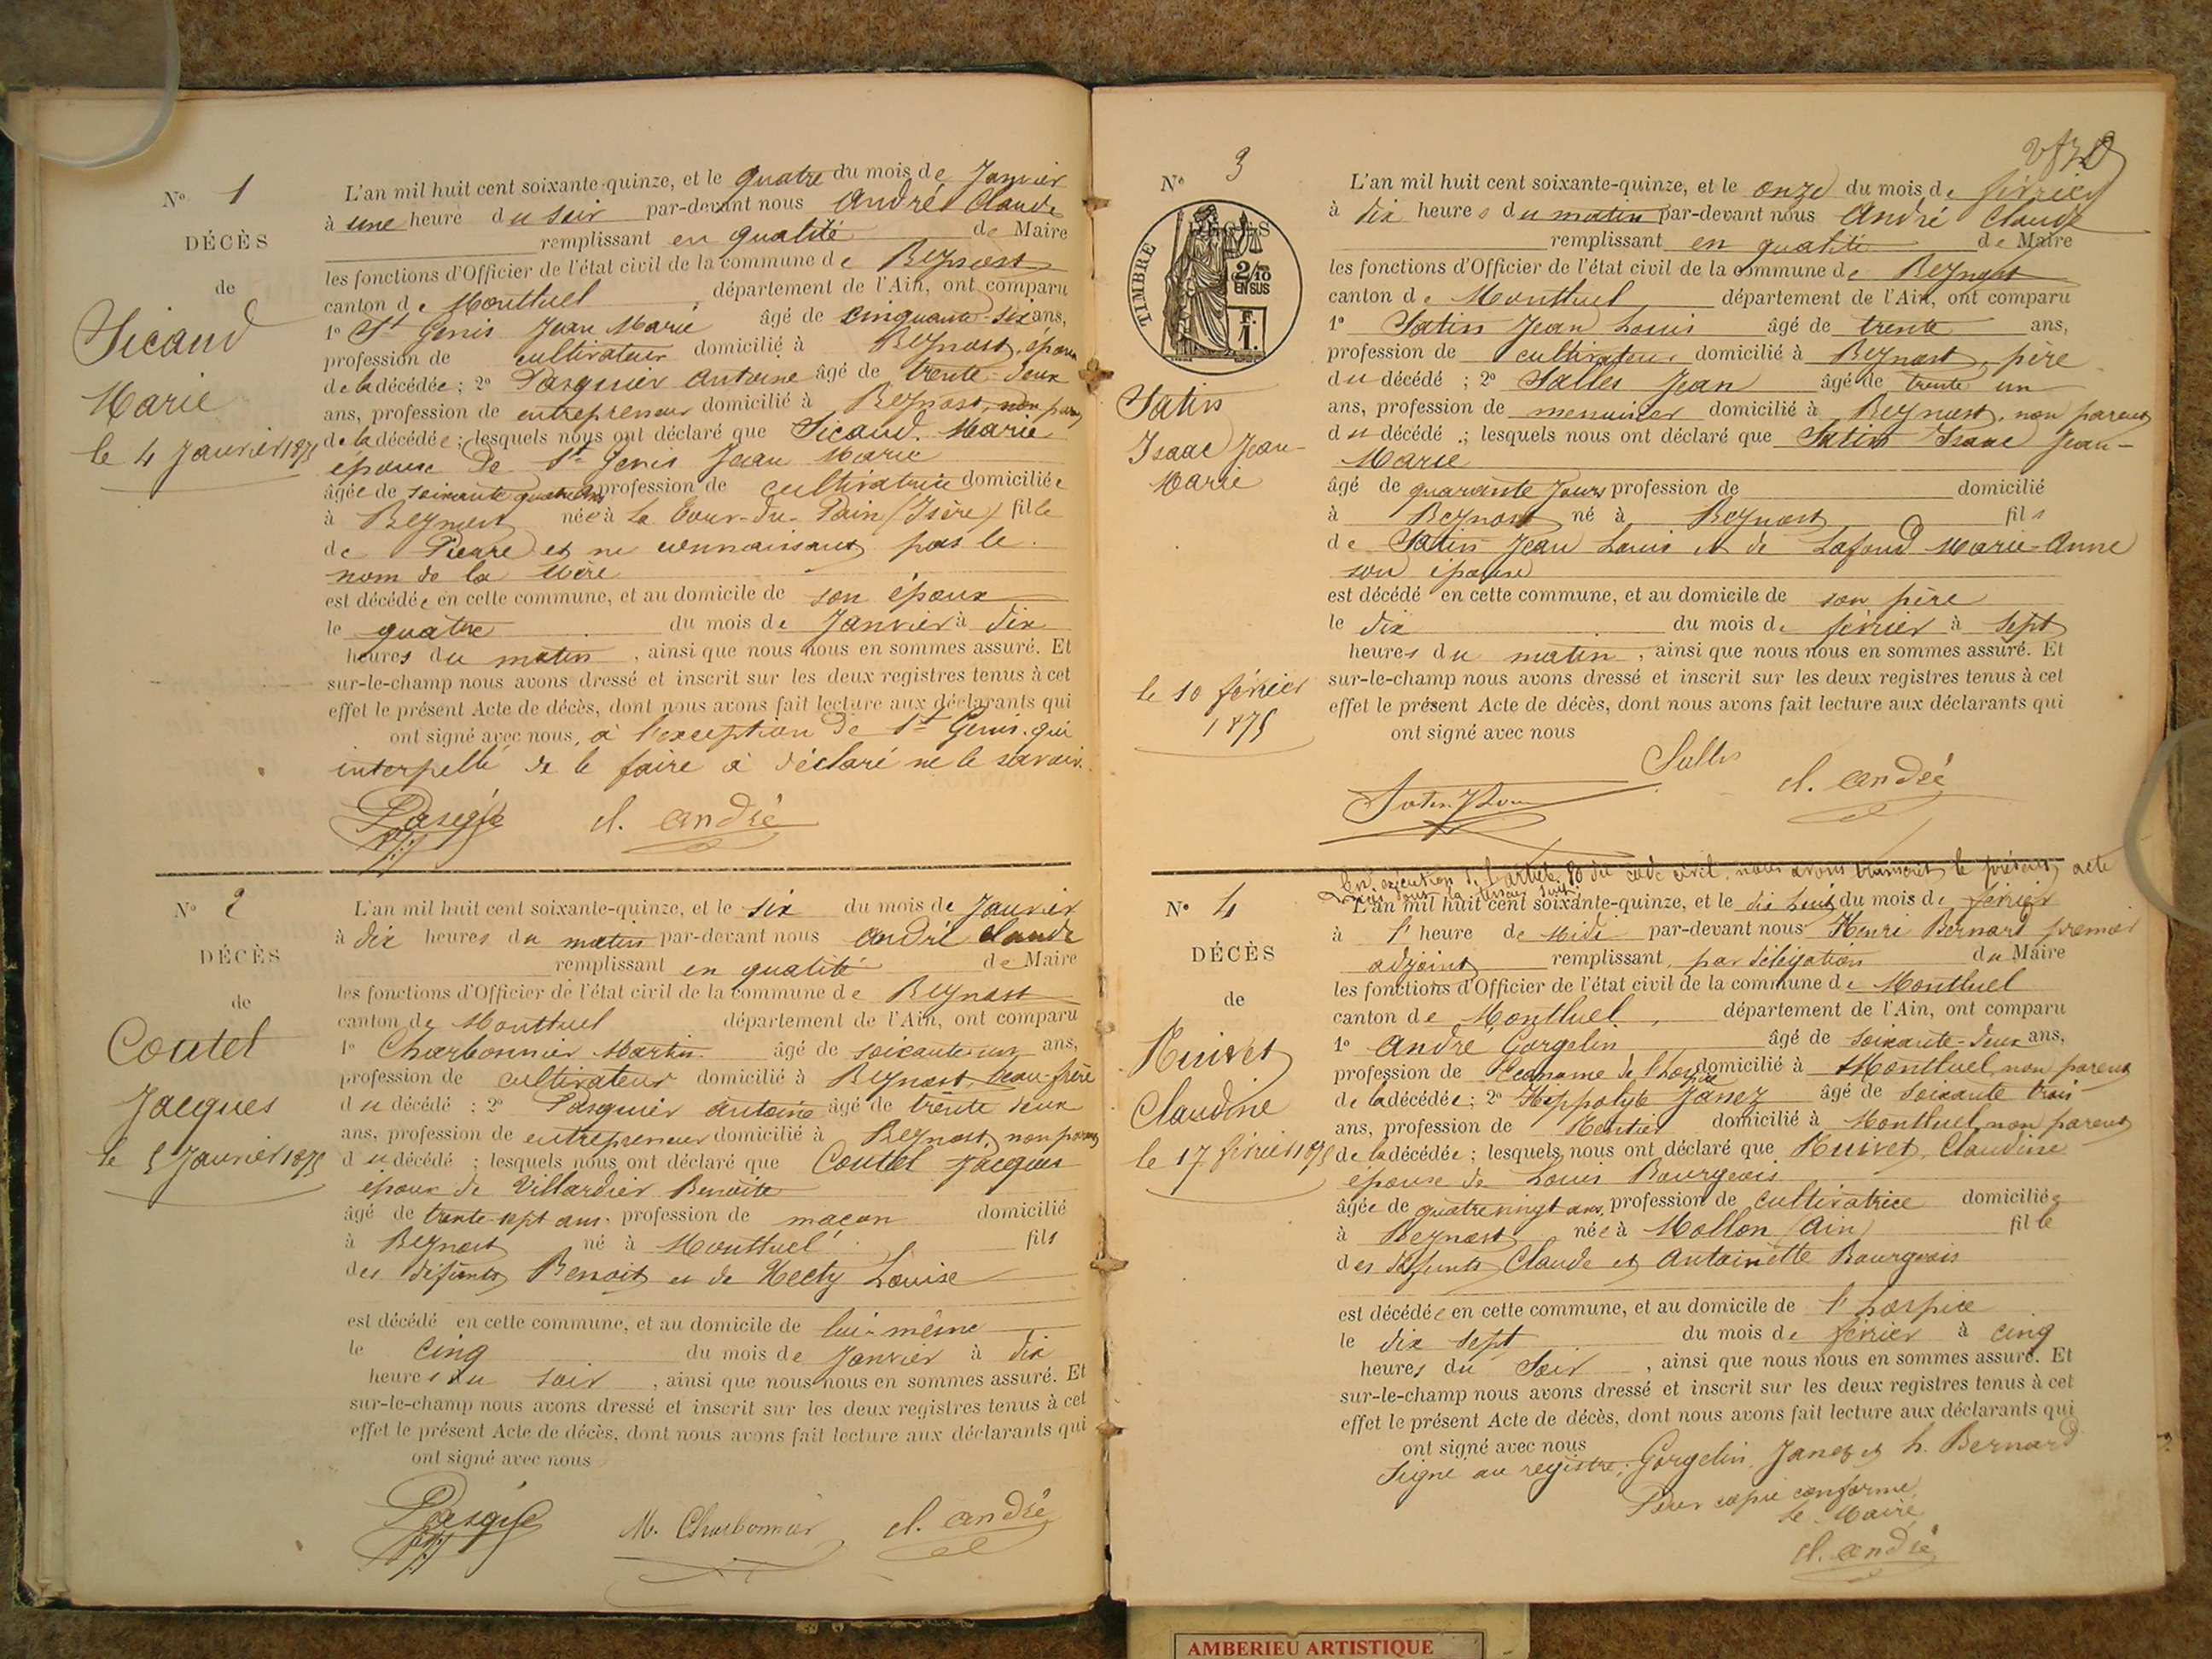 N° 1
DÉCÈS
de
Sicaud
Marie
le 4 Janvier 1875
L'an mil huit cent soixante-quinze, et le quatre du mois de Janvier
à une heure du soir par-devant nous André Claude
remplissant en qualité de Maire
les fonctions d'Officier de l'état civil de la commune de Beynost
canton de Montluel, département de l'Ain, ont comparu
1° St Genis Jean Marie âgé de cinquante-six ans,
profession de cultivateur domicilié à Beynost, époux
de la décédée; 2° Pasquier Antoine âgé de trente-deux
ans, profession de entrepreneur domicilié à Beynost, non parent
de la décédée; lesquels nous ont déclaré que Sicaud Marie
épouse de St Genis Jean Marie
âgée de soixante quatre ans profession de cultivatrice domiciliée
à Beynost née à La Tour-du-Pain (Isère) fille
de Pierre et ne connaissant pas le
nom de la Mère
est décédée en cette commune, et au domicile de son époux
le quatre du mois de Janvier à dix
heures du matin, ainsi que nous nous en sommes assuré. Et
sur-le-champ nous avons dressé et inscrit sur les deux registres tenus à cet
effet le présent Acte de décès, dont nous avons fait lecture aux déclarants qui
ont signé avec nous, à l'exception de St Genis qui
interpellé de le faire a déclaré ne le savoir.
cl. andré
N° 2
DÉCÈS
de
Coutel
Jacques
le 5 Janvier 1875
L'an mil huit cent soixante-quinze, et le six du mois de Janvier
à dix heures du matin par-devant nous André Claude
remplissant en qualité de Maire
les fonctions d'Officier de l'état civil de la commune de Beynost
canton de Montluel département de l'Ain, ont comparu
1° Charbonnier Martin âgé de soixante-un ans,
profession de cultivateur domicilié à Beynost, beau-frère
du décédé; 2° Pasquier Antoine âgé de trente deux
ans, profession de entrepreneur domicilié à Beynost, non parent
du décédé; lesquels nous ont déclaré que Coutel Jacques
époux de Villardier Benoite
âgé de trente-sept ans, profession de maçon domicilié
à Beynost né à Montluel fils
des défunts Benoit et de Louise
est décédé en cette commune, et au domicile de lui-même
le cinq du mois de Janvier à dix
heures du soir, ainsi que nous nous en sommes assuré. Et
sur-le-champ nous avons dressé et inscrit sur les deux registres tenus à cet
effet le présent Acte de décès, dont nous avons fait lecture aux déclarants qui
ont signé avec nous
M. Charbonnier cl. andré
N° 3
TIMBRE
2/10
EN SUS
F.
1.
Satin
Isaac Jean-
Marie
le 10 février
1875
L'an mil huit cent soixante-quinze, et le onze du mois de février
à dix heures du matin par-devant nous André Claude
remplissant en qualité de Maire
les fonctions d'Officier de l'état civil de la commune de Beynost
canton de Montluel département de l'Ain, ont comparu
1° Satin Jean Louis âgé de trente ans,
profession de cultivateur domicilié à Beynost, père
du décédé; 2° Salles Jean âgé de trente un
ans, profession de menuisier domicilié à Beynost, non parent
du décédé; lesquels nous ont déclaré que Satin Isaac Jean-
Marie
âgé de quarante jours profession de domicilié
à Beynost né à Beynost fils
de Satin Jean Louis et de Lafond Marie-Anne
son épouse
est décédé en cette commune, et au domicile de son père
le dix du mois de février à sept
heures du matin, ainsi que nous nous en sommes assuré. Et
sur-le-champ nous avons dressé et inscrit sur les deux registres tenus à cet
effet le présent Acte de décès, dont nous avons fait lecture aux déclarants qui
ont signé avec nous
Salles
cl. andré
En exécution de l'article 80 du code civil, nous avons transcrit le présent acte
N° 4
DÉCÈS
de
Claudine
le 17 février 1875
L'an mil huit cent soixante-quinze, et le dix huit du mois de février
à l'heure de Midi par-devant nous Henri Bernard premier
adjoint remplissant par délégation du Maire
les fonctions d'Officier de l'état civil de la commune de Montluel
canton de Montluel, département de l'Ain, ont comparu
1° André Gorgelin âgé de soixante-deux ans,
profession de Econome de l'hospice domicilié à Montluel, non parent
de la décédée; 2° Hippolyte Janez âgé de soixante trois
ans, profession de Rentier domicilié à Montluel, non parent
de la décédée; lesquels nous ont déclaré que Claudine
épouse de Louis Bourgeois
âgée de quatre vingt ans, profession de cultivatrice domiciliée
à Beynost née à Mollon (Ain) fille
des défunts Claude et Antoinette Bourgeois
est décédée en cette commune, et au domicile de l'hospice
le dix sept du mois de février à cinq
heures du Soir, ainsi que nous nous en sommes assuré. Et
sur-le-champ nous avons dressé et inscrit sur les deux registres tenus à cet
effet le présent Acte de décès, dont nous avons fait lecture aux déclarants qui
ont signé avec nous
Signé au registre: Gorgelin, Janez et h. Bernard
Pour copie conforme,
Le Maire
cl. andré
AMBERIEU ARTISTIQUE